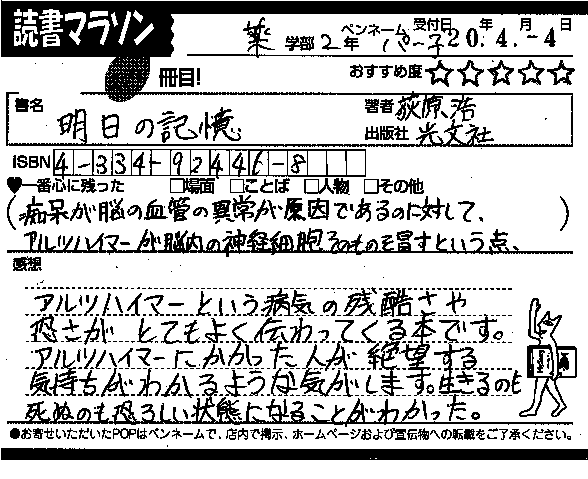 読書マラソン
薬 学部 2年 ペンネーム パー子 受付日 20年 4月 -4日
冊目! おすすめ度☆☆☆☆☆
書名 明日の記憶 著者 荻原浩
出版社 光文社
ISBN 4-334-92446-8
♥一番心に残った □場面 □ことば □人物 □その他
(痴呆が脳の血管の異常が原因であるのに対して、
アルツハイマーが脳内の神経細胞そのものを冒すという点、)
感想
アルツハイマーという病気の残酷さや
恐さが とてもよく伝わってくる本です。
アルツハイマーにかかった人が 絶望する
気持ちがわかるような気がします。生きるのも
死ぬのも恐ろしい状態になることがわかった。
●お寄せいただいたPOPはペンネームで、店内で掲示、ホームページおよび宣伝物への転載をご了承ください。